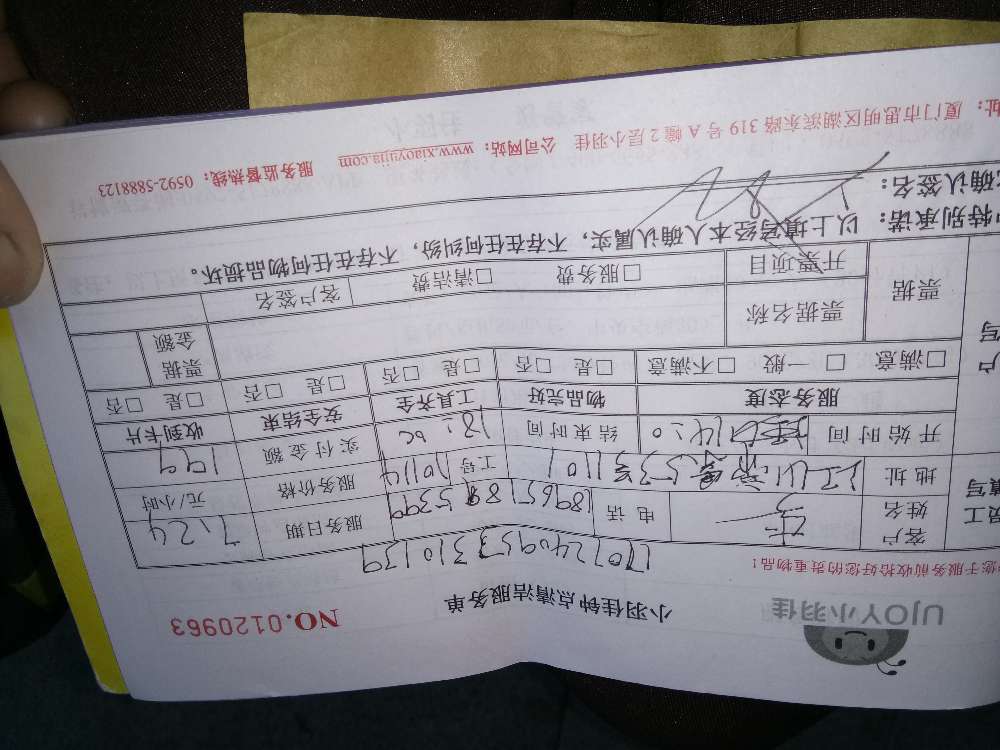 UJOY小羽佳
小羽佳钟点清洁服务单
NO.0120963
您于服务前收拾好您的贵重物品！
1707240953310139
客户姓名 电话 服务日期 7.24
地址 工号 70114 服务价格 元/小时
开始时间 14:0 结束时间 18:00 实付金额 199
服务态度 物品完好 工具齐全 安全结束 收到卡片
□满意 □一般 □不满意 □是 □否 □是 □否 □是 □否 □是 □否
票据 票据名称 票据金额
开票项目 □服务费 □清洁费 客户签名
特别承诺：以上填写经本人确认属实，不存在任何纠纷，不存在任何物品损坏。
确认签名：
址：厦门市思明区湖滨东路 319 号 A 幢 2 层小羽佳 公司网站：www.xiaoyujia.com 服务监督热线：0592-5888123